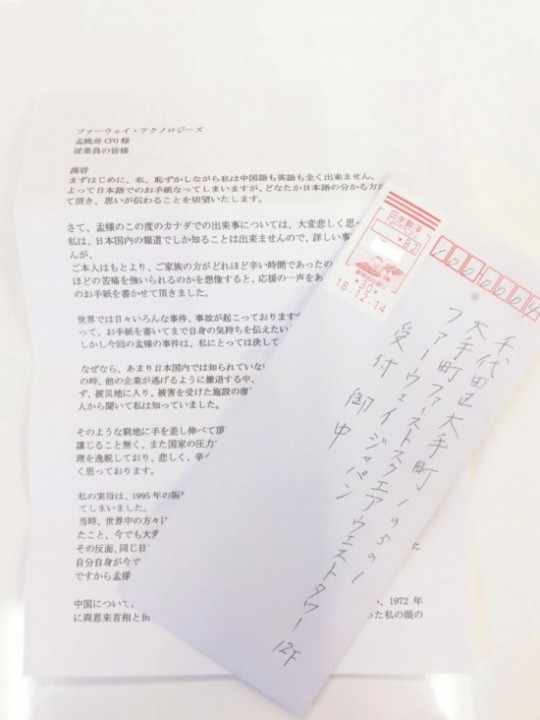 ファーウェイ・テクノロジーズ
孟晩舟CFO様
従業員の皆様
謹啓
まずはじめに、私、恥ずかしながら私は中国語も英語も全く出来ません。
よって日本語でのお手紙なってしまいますが、どなたか日本語の分かる方
て頂き、思いが伝わることを切望いたします。
さて、孟様のこの度のカナダでの出来事については、大変悲しく思っ
私は、日本国内の報道でしか知ることは出来ませんので、詳しい事
んが、
ご本人はもとより、ご家族の方がどれほど辛い時間であったの
ほどの苦痛を強いられるのかを想像すると、応援の一声をあ
のお手紙を書かせて頂きました。
世界では日々いろんな事件、事故が起こっております
って、お手紙を書いてまで自身の気持ちを伝えたい
しかし今回の孟様の事件は、私にとっては決して
なぜなら、あまり日本国内では知られていな
の時、他の企業が逃げるように撤退する中、
ず、被災地に入り、被害を受けた施設の復
人から聞いて私は知っていました。
そのような窮地に手を差し伸べて頂
講じること無く、また国家の圧力
理を逸脱しており、悲しく、辛
く思っております。
私の実母は、1995年の阪
てしまいました。
当時、世界中の方々に
たこと、今でも大変
その反面、同じ日
自分自身が今で
ですから孟様
中国について、
、1972年
に周恩来首相と田
った私の頭の
日本郵便
82
30
18.12.14
千代田区大手町1951
大手町ファーストスクエアウエストタワー12F
ファーウェイジャパン
受付 御中